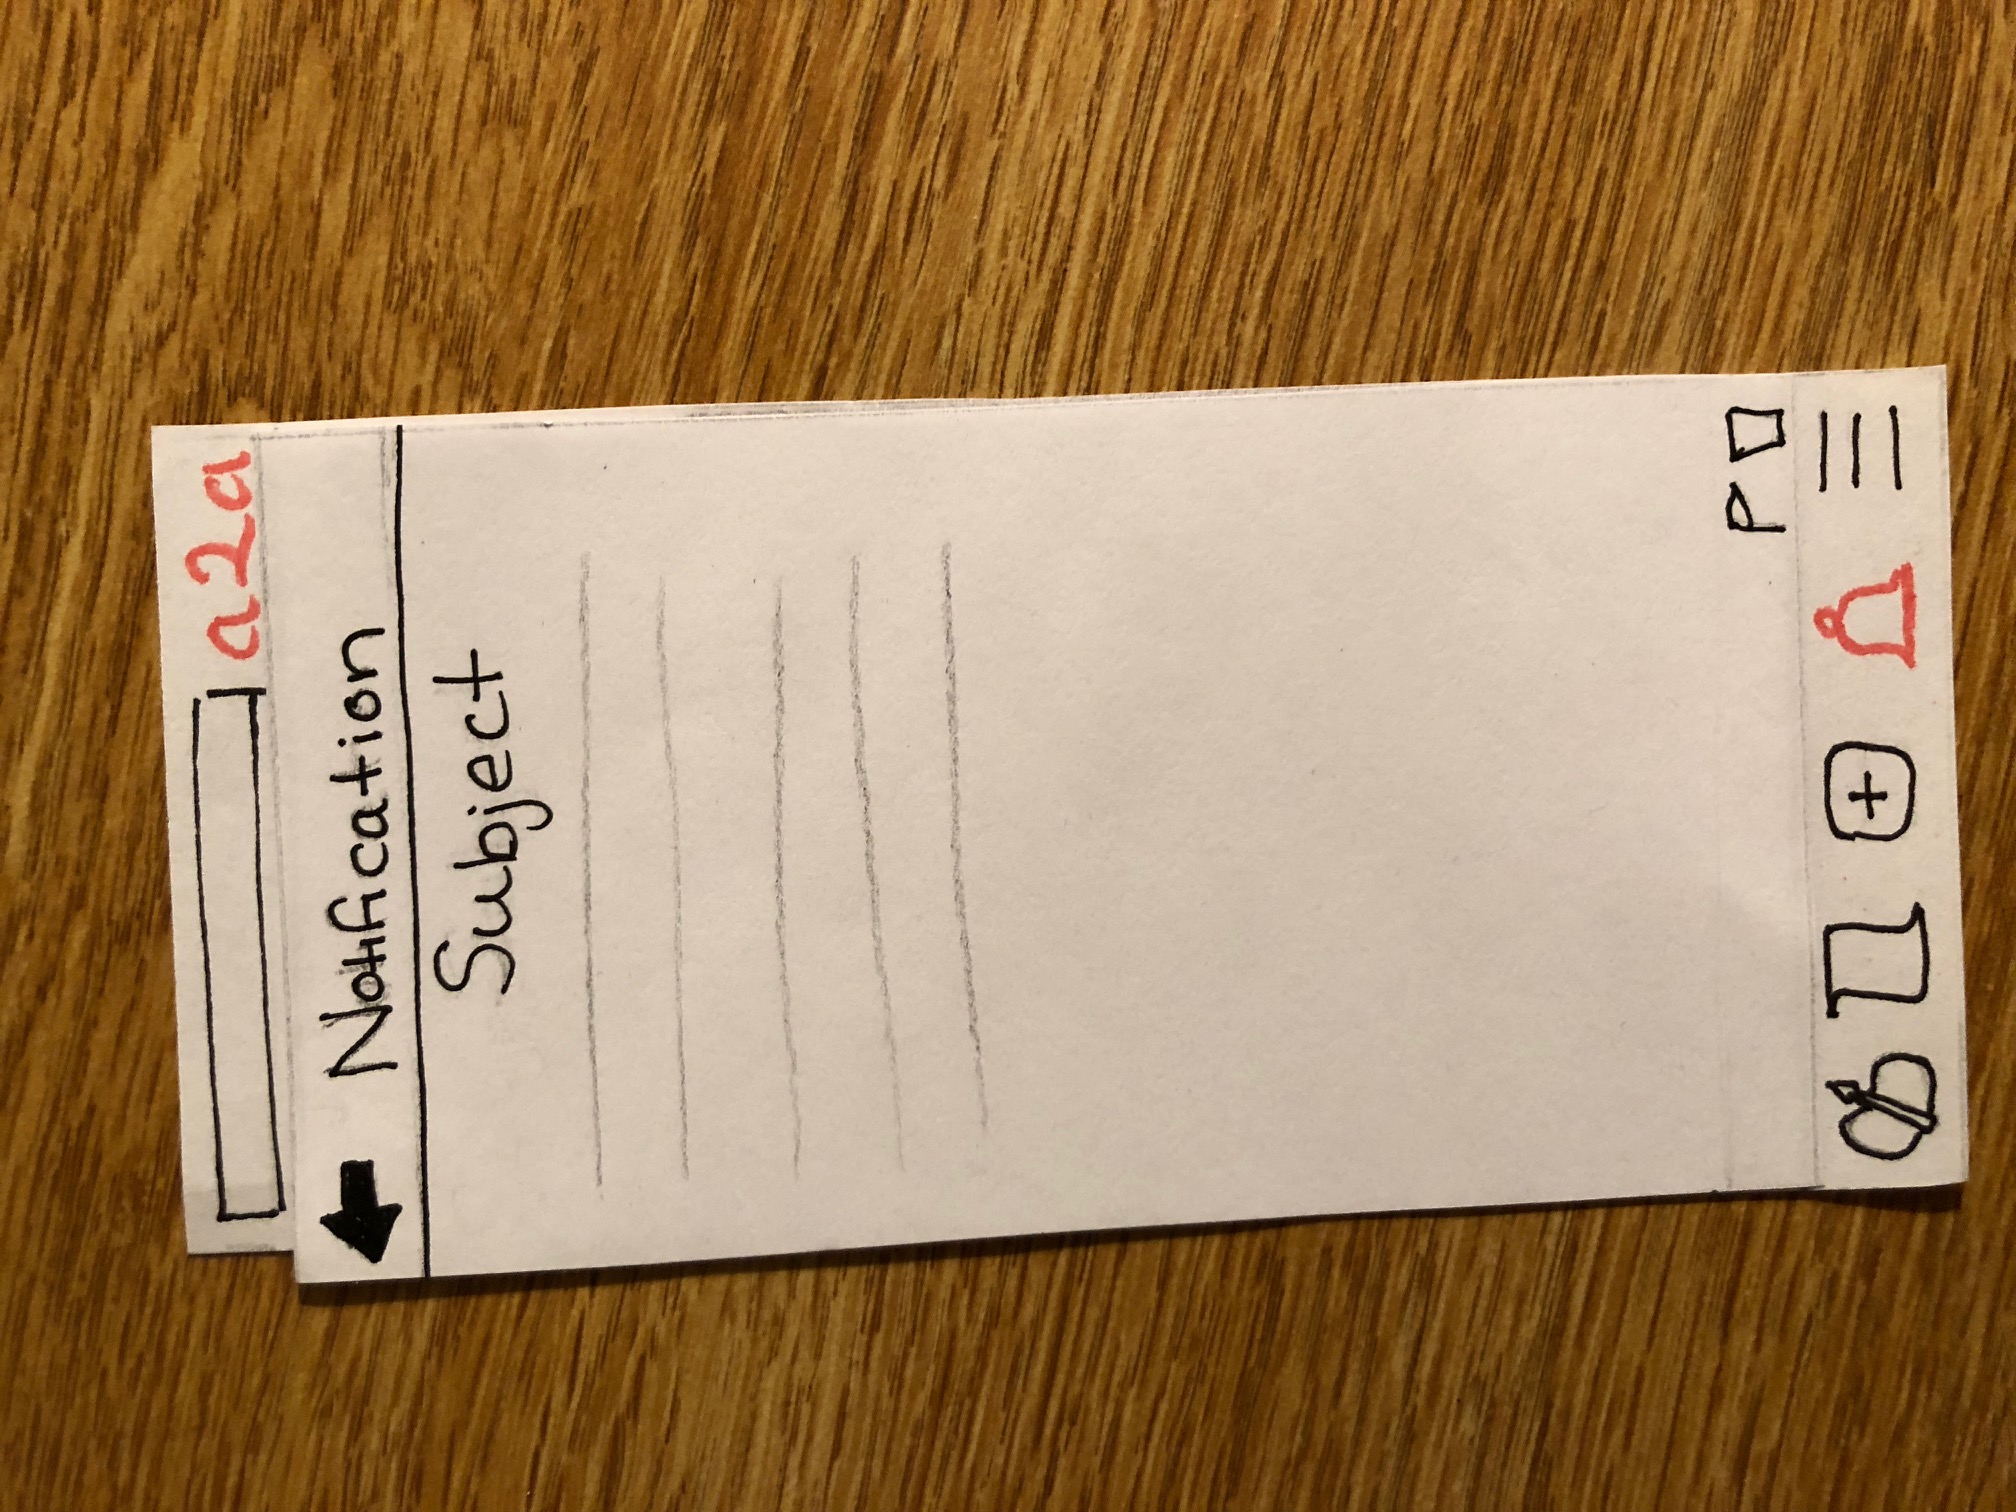 a2a
Notification
Subject